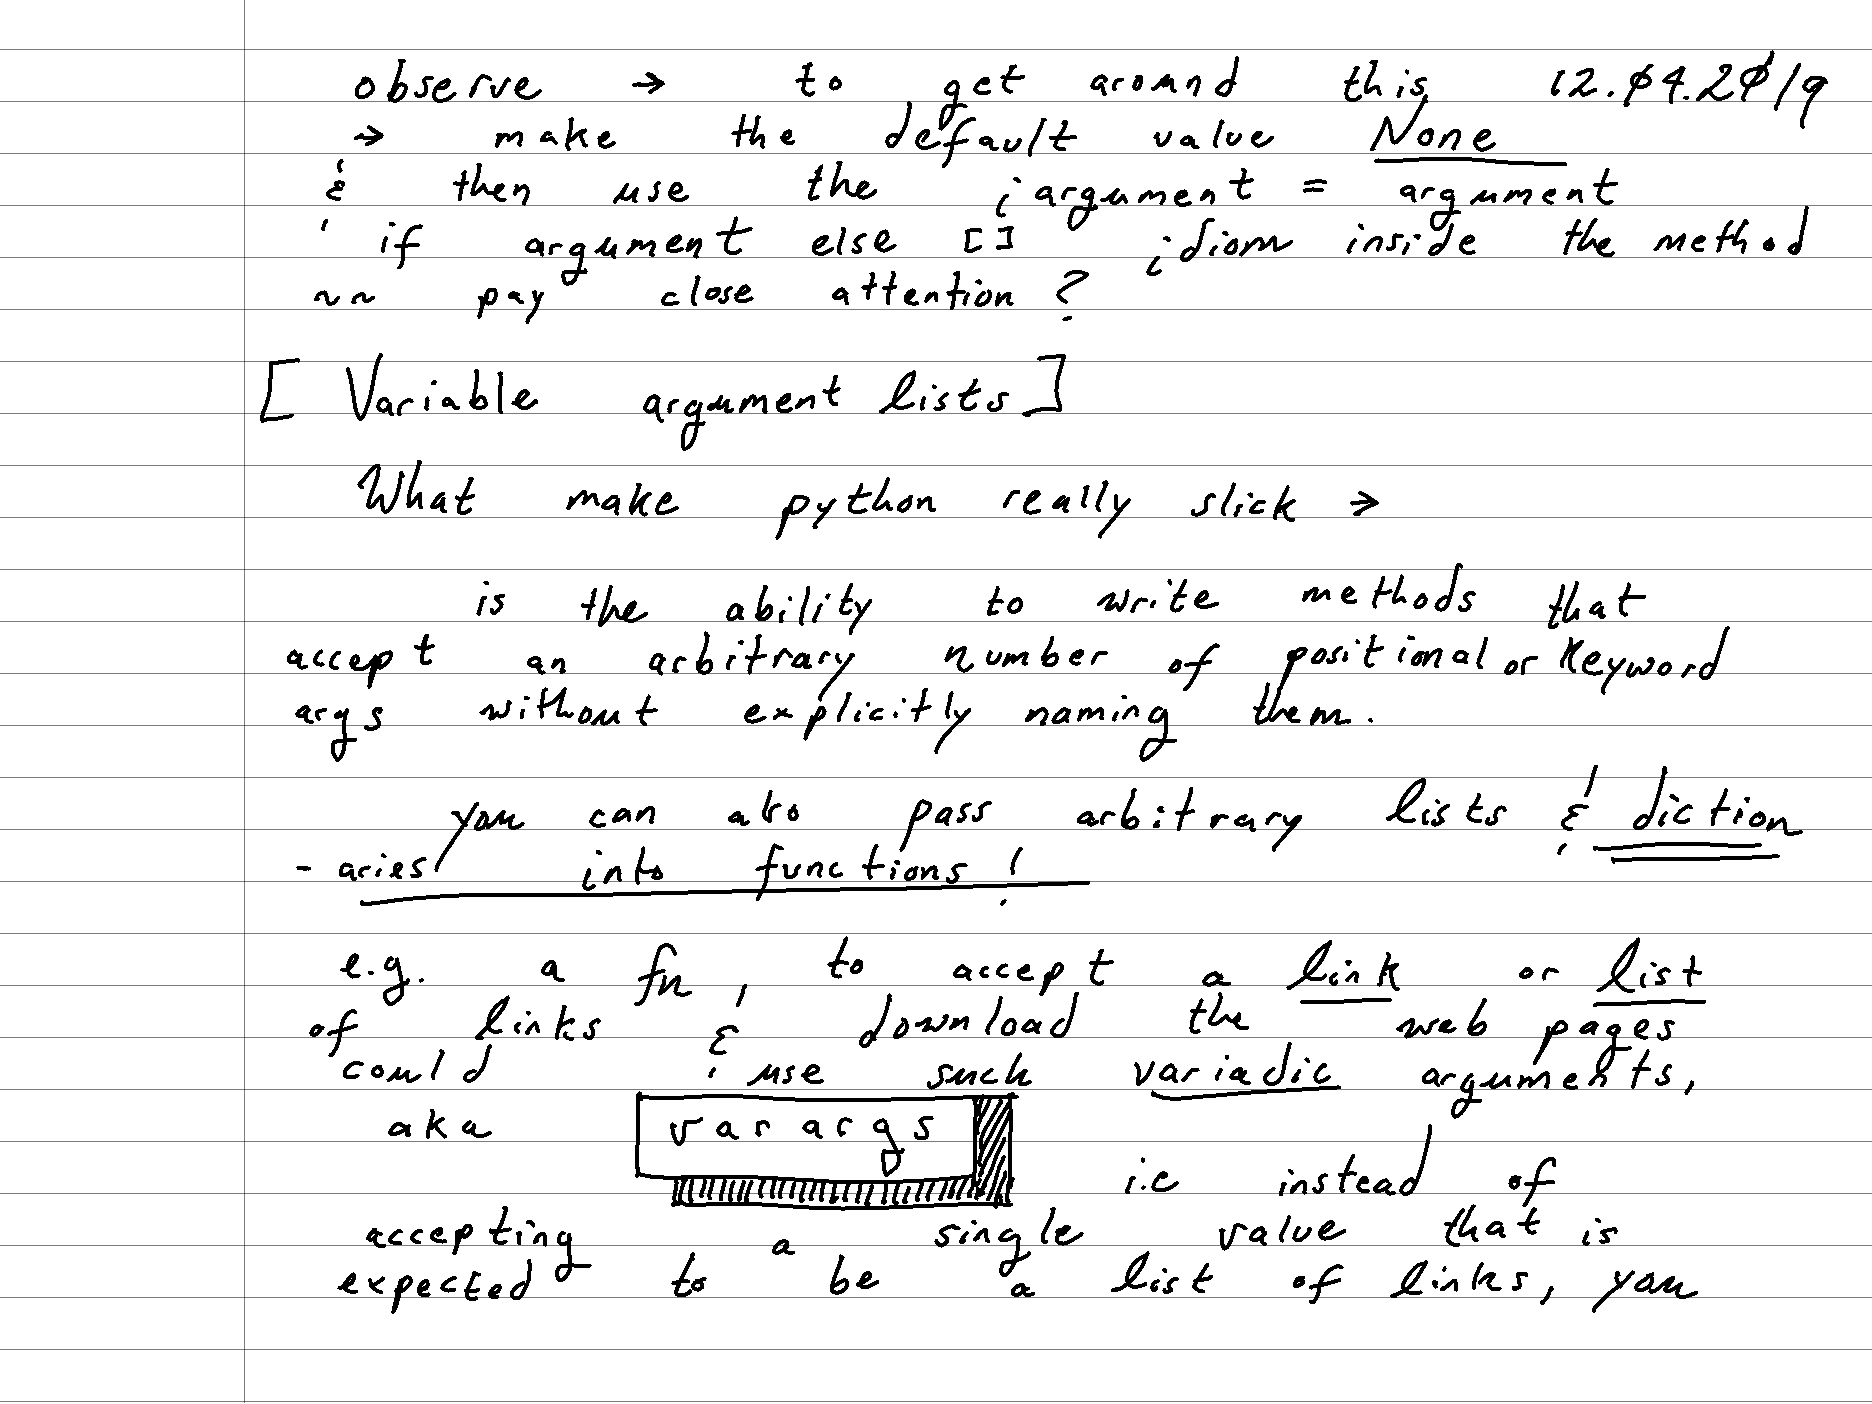 observe → to get around this 12.04.2019
→ make the default value None
& then use the ¡ argument = argument
if argument else [] ¡ idiom inside the method
~~ pay close attention ?
[ Variable argument lists ]
What make python really slick →
is the ability to write methods that
accept an arbitrary number of positional or keyword
args without explicitly naming them.
you can also pass arbitrary lists & diction
- aries into functions !
e.g. a fn, to accept a link or list
of links & download the web pages
could use such variadic arguments,
aka varargs
i.e instead of
accepting a single value that is
expected to be a list of links, you